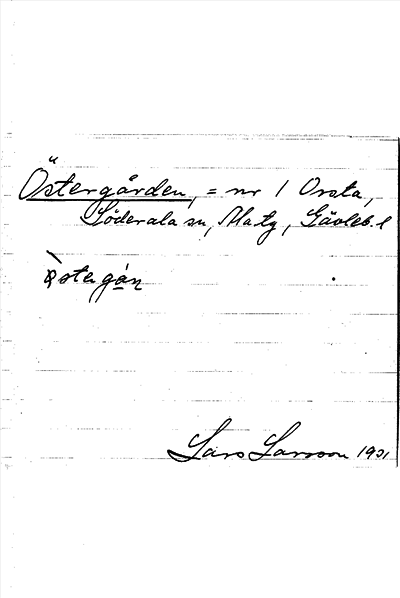 Östergården, = nr 1 Orsta,
Söderala sn, Ala tg, Gävleb. l
østergán
Lars Larsson 1931